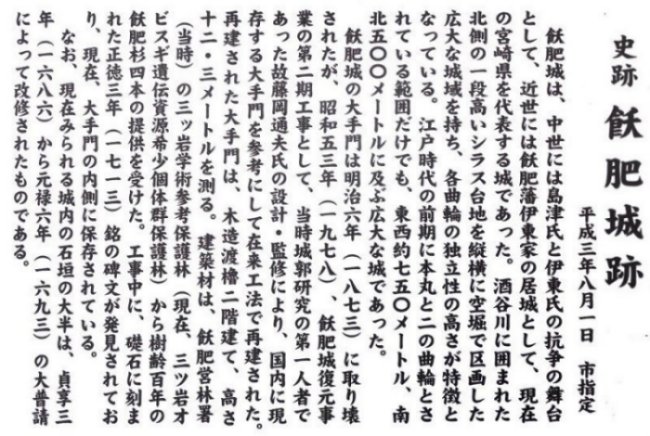 史跡 飫肥城跡
平成三年八月一日 市指定
飫肥城は、中世には島津氏と伊東氏の抗争の舞台
として、近世には飫肥藩伊東家の居城として、現在
の宮崎県を代表する城であった。酒谷川に囲まれた
北側の一段高いシラス台地を縦横に空堀で区画した
広大な城域を持ち、各曲輪の独立性の高さが特徴と
なっている。江戸時代の前期に本丸と二の曲輪とさ
れている範囲だけでも、東西約七五〇メートル、南
北五〇〇メートルに及ぶ広大な城であった。
飫肥城の大手門は明治六年（一八七三）に取り壊
されたが、昭和五三年（一九七八）、飫肥城復元事
業の第二期工事として、当時城郭研究の第一人者で
あった故藤岡通夫氏の設計・監修により、国内に現
存する大手門を参考にして在来工法で再建された。
再建された大手門は、木造渡櫓二階建て、高さ
十二・三メートルを測る。建築材は、飫肥営林署
（当時）の三ッ岩学術参考保護林（現在、三ツ岩オ
ビスギ遺伝資源希少個体群保護林）から樹齢百年の
飫肥杉四本の提供を受けた。工事中に、礎石に刻ま
れた正徳三年（一七一三）銘の碑文が発見されてお
り、現在、大手門の内側に保存されている。
なお、現在みられる城内の石垣の大半は、貞享三
年（一六八六）から元禄六年（一六九三）の大普請
によって改修されたものである。